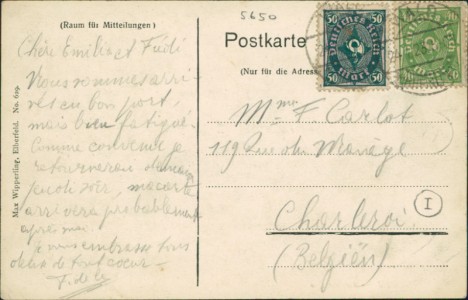 (Raum für Mitteilungen)
5650
Postkarte
(Nur für die Adresse
50 50
Deutsches Reich
Mark
50 50
Chère Emilia et Fredi
Nous sommes arri-
vés en bon port,
mais bien fatigué.
Comme convenu je
retournerai demain
jeudi soir, ma carte
arrivera probablement
après moi.
Je vous embrasse tous
deux de tout coeur -
Max Wipperling, Elberfeld. No. 609.
Mme F. Carlot
119 Rue du Manège
Charleroi
I
(Belgiën)